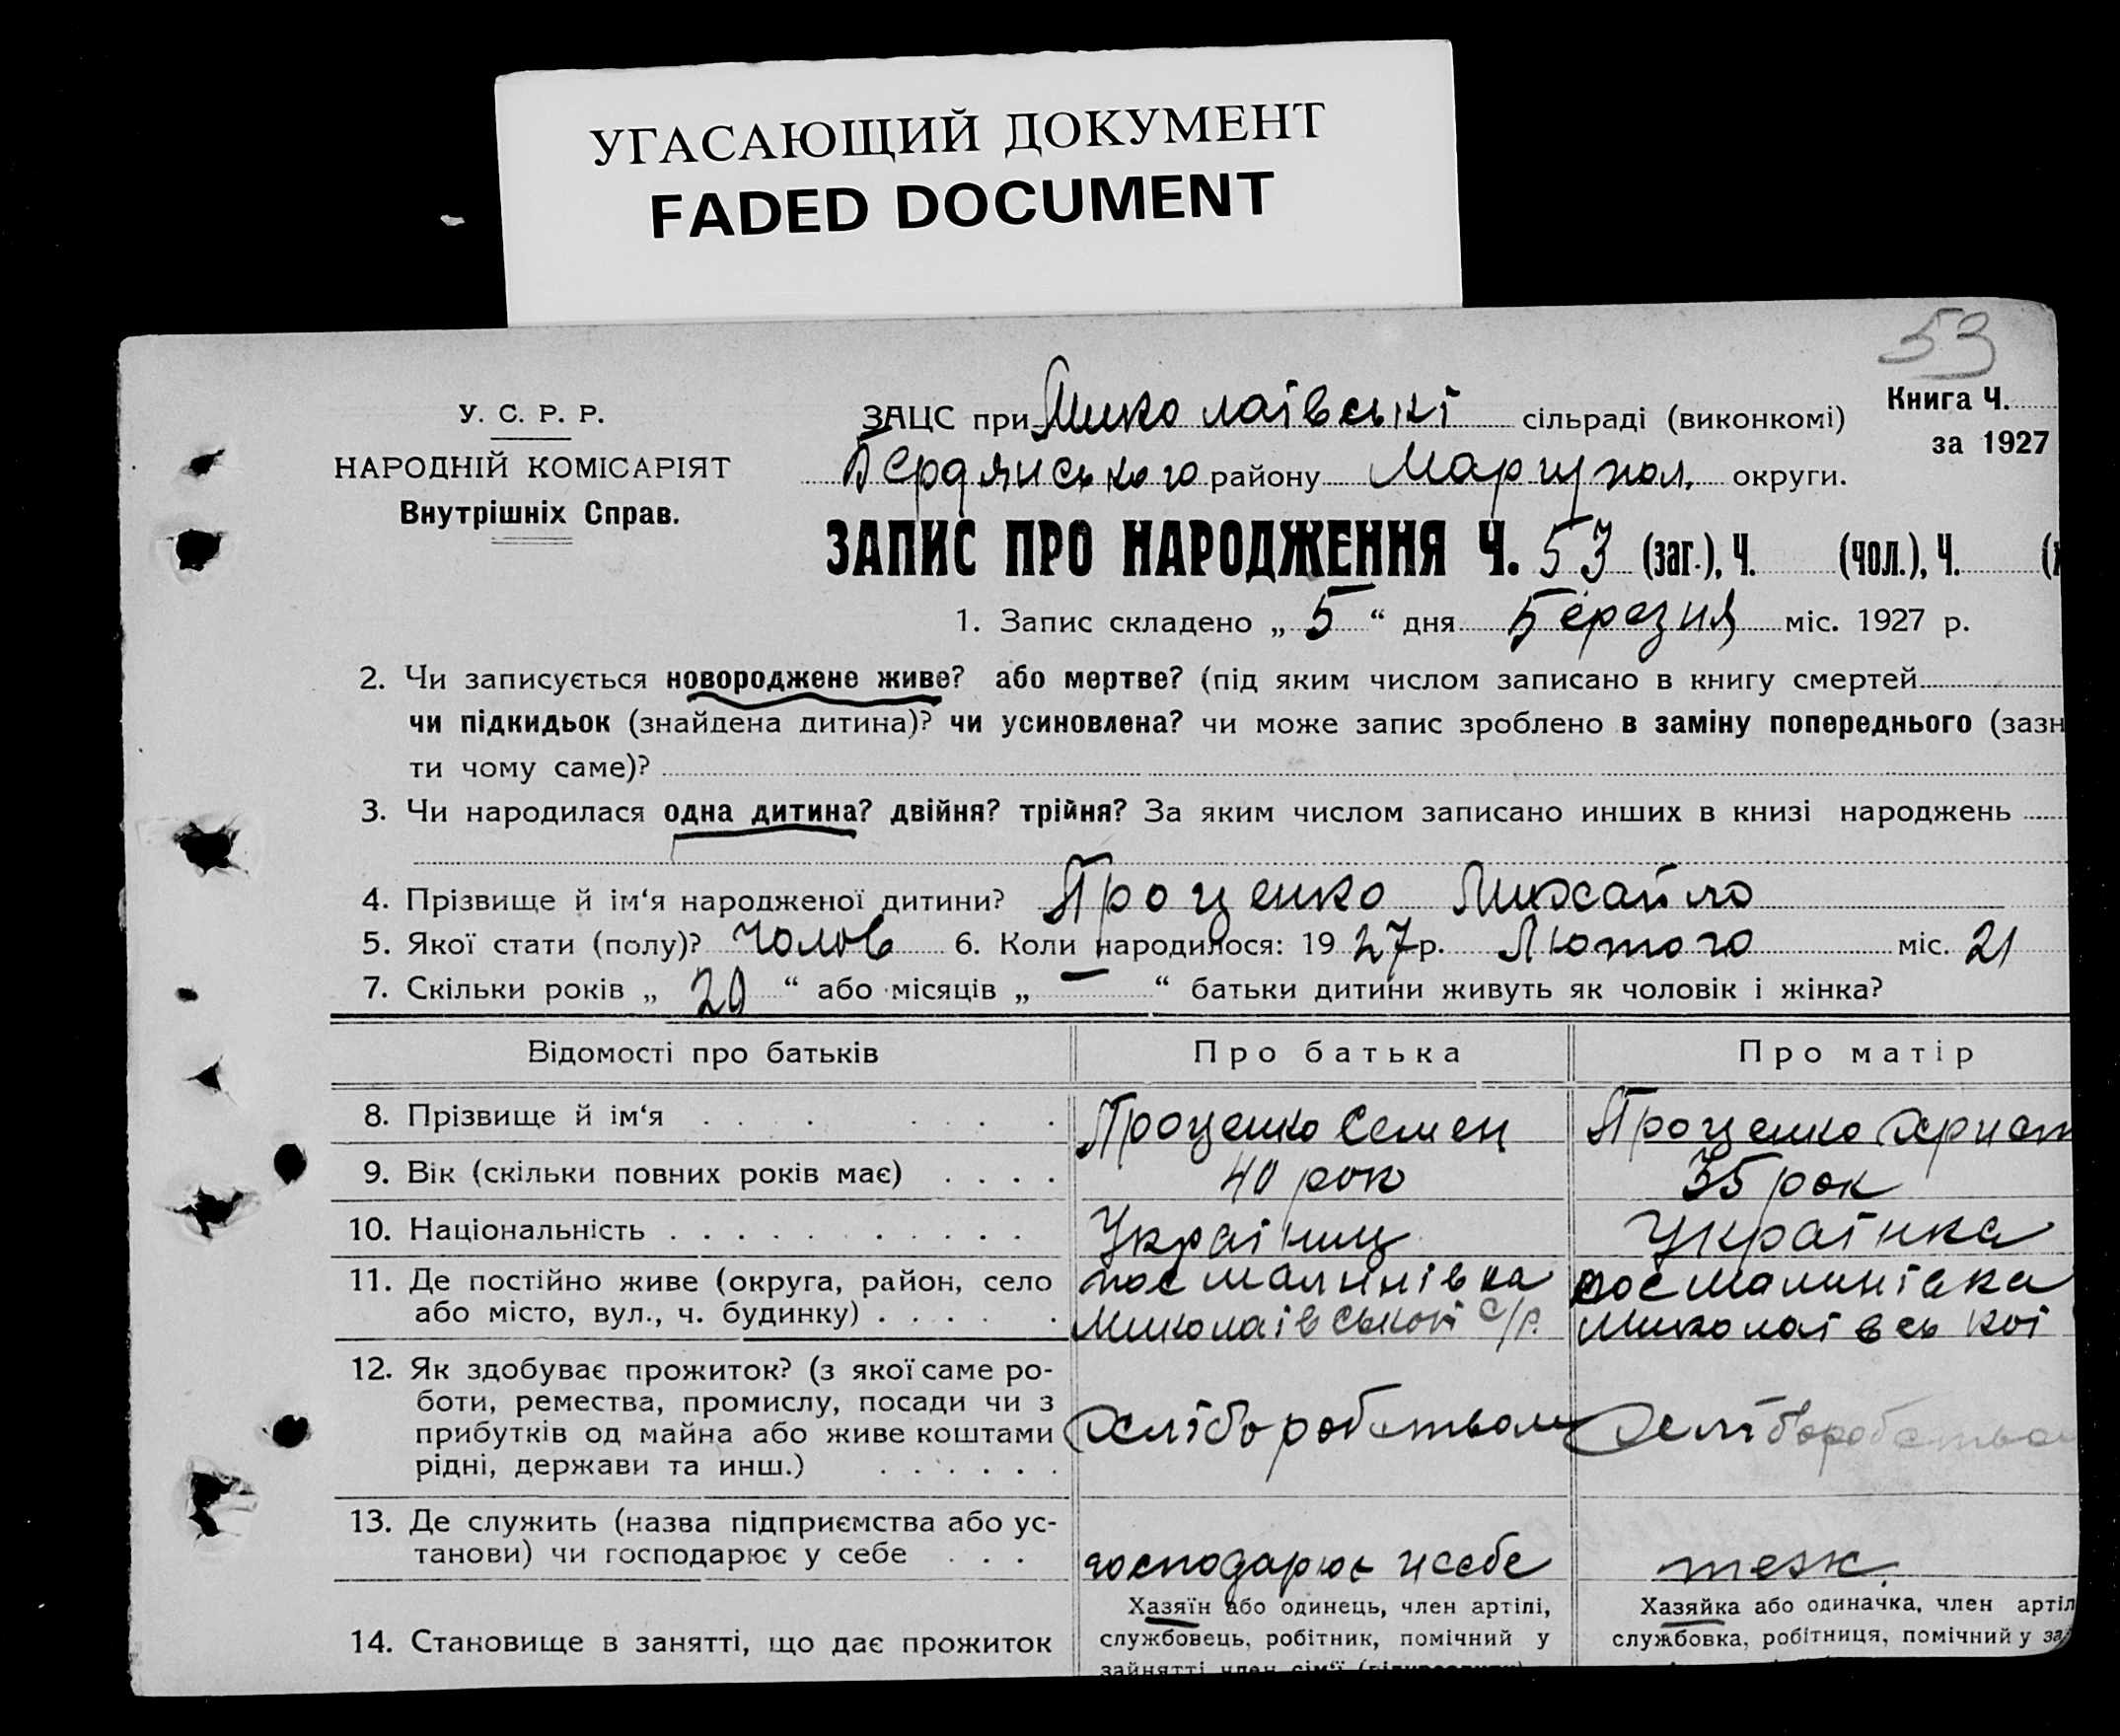 УГАСАЮЩИЙ ДОКУМЕНТ
FADED DOCUMENT
53
У. С. Р. Р.
НАРОДНІЙ КОМІСАРІЯТ
Внутрішніх Справ.
ЗАЦС при Миколаівські сільраді (виконкомі)
Книга Ч.
за 1927
Бердянського району Маріупол. округи.
ЗАПИС ПРО НАРОДЖЕННЯ Ч. 53 (заг.), Ч. (чол.), Ч.
1. Запис складено „ 5 “ дня Березня міс. 1927 р.
2. Чи записується новороджене живе? або мертве? (під яким числом записано в книгу смертей
чи підкидьок (знайдена дитина)? чи усиновлена? чи може запис зроблено в заміну попереднього (зазн
ти чому саме)?
3. Чи народилася одна дитина? двійня? трійня? За яким числом записано инших в книзі народжень
4. Прізвище й ім‘я народженої дитини? Проценко Михайло
5. Якої стати (полу)? Чолов 6. Коли народилося: 1927 р. Лютого міс. 21
7. Скільки років „ 20 “ або місяців „ — “ батьки дитини живуть як чоловік і жінка?
Відомості про батьків Про батька Про матір
8. Прізвище й ім‘я Проценко Семен Проценко
9. Вік (скільки повних років має) 40 рок 35 рок
10. Національність Украінец Украінка
11. Де постійно живе (округа, район, село пос Малинівка пос Малинівка
або місто, вул., ч. будинку) Миколаівськоі с/р. Миколаівськоі
12. Як здобуває прожиток? (з якої саме ро-
боти, ремества, промислу, посади чи з
прибутків од майна або живе коштами Хліборобством Хліборобством
рідні, держави та инш.)
13. Де служить (назва підприємства або ус-
танови) чи господарює у себе господарює у себе теж.
Хазяїн або одинець, член артілі, Хазяйка або одиначка, член артіл
14. Становище в занятті, що дає прожиток службовець, робітник, помічний у службовка, робітниця, помічний у за